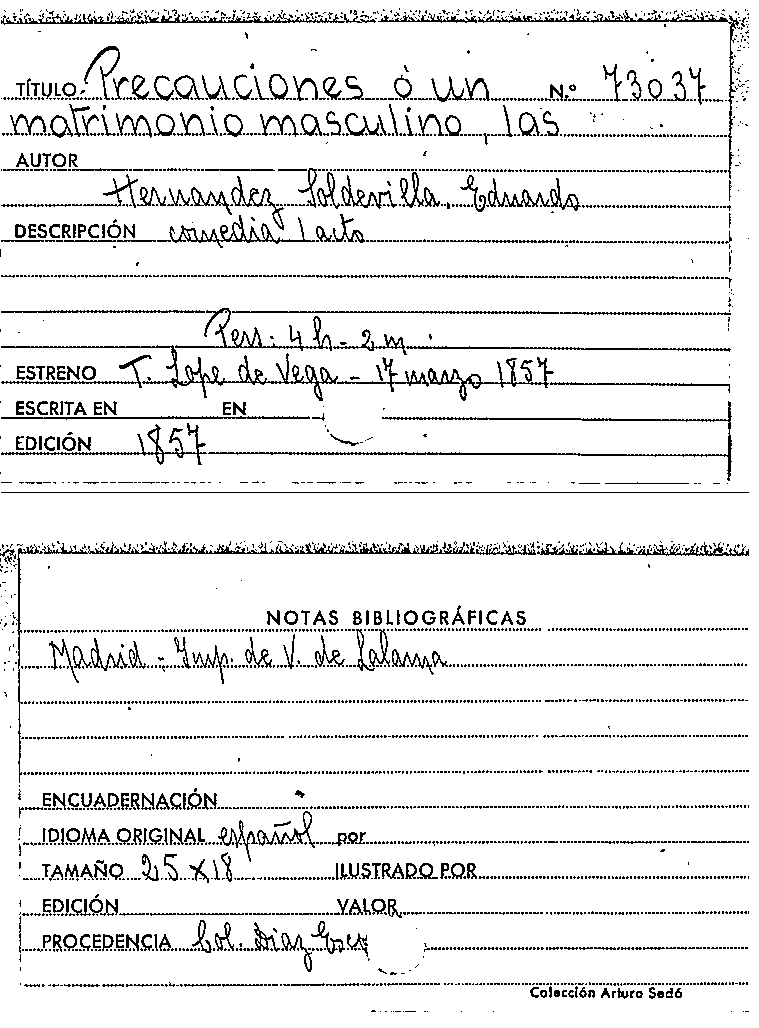 TÍTULO: Precauciones ó un N.º 73037
matrimonio masculino, las
AUTOR
Hernandez Soldevilla, Eduardo
DESCRIPCIÓN comedia 1 acto
Pers: 4 h - 2 m
ESTRENO T. Lope de Vega - 17 marzo 1857
ESCRITA EN EN
EDICIÓN 1857
NOTAS BIBLIOGRÁFICAS
Madrid - Imp. de V. de Lalama
ENCUADERNACIÓN
IDIOMA ORIGINAL español por
TAMAÑO 25 x 18 ILUSTRADO POR
EDICIÓN VALOR
PROCEDENCIA Col. Diaz
Colección Arturo Sedó